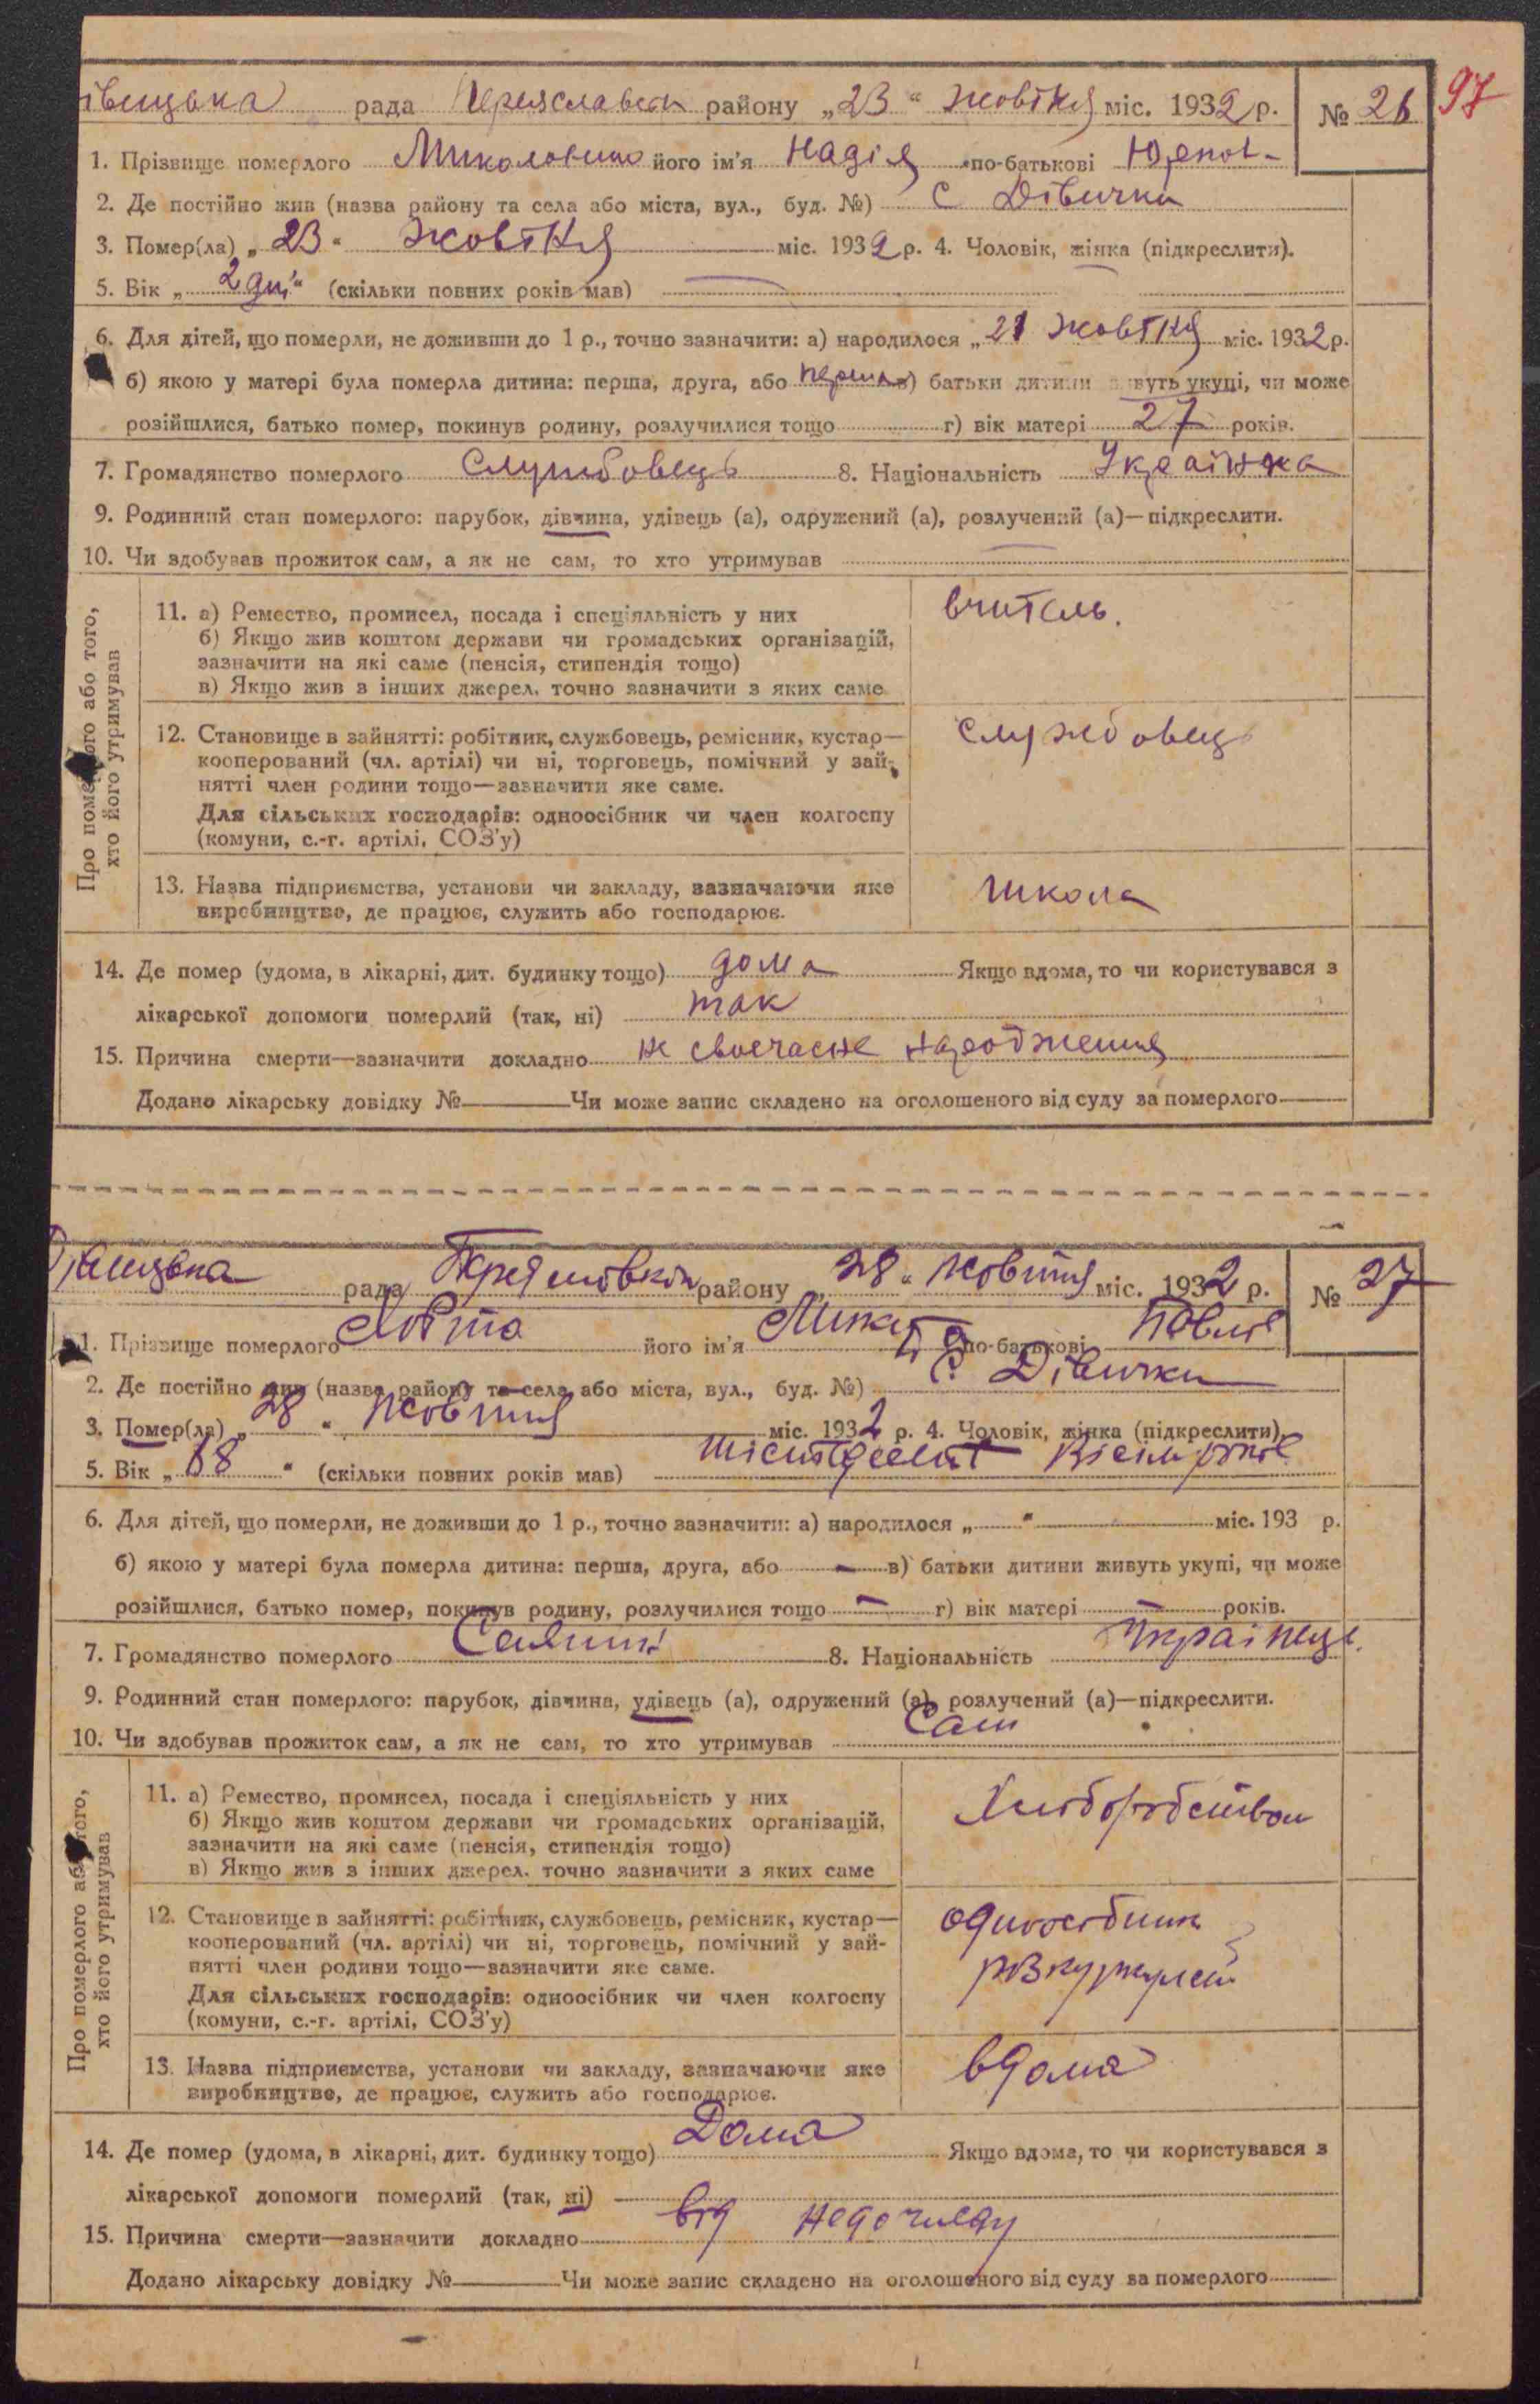 івицька рада Переяславськ району „23“ жовтня міс. 1932 р. № 26 97
1. Прізвище померлого його ім'я Надія по-батькові
2. Де постійно жив (назва району та села або міста, вул., буд. №) С Дівички
3. Помер(ла) „23“ жовтня міс. 1932 р. 4. Чоловік, жінка (підкреслити).
5. Вік „2 дні“ (скільки повних років мав)
6. Для дітей, що померли, не доживши до 1 р., точно зазначити: а) народилося „21 жовтня міс. 1932 р.
б) якою у матері була померла дитина: перша, друга, або перша в) батьки дитини живуть укупі, чи може
розійшлися, батько помер, покинув родину, розлучилися тощо г) вік матері 27 років.
7. Громадянство померлого Службовець 8. Національність Українка
9. Родинний стан померлого: парубок, дівчина, удівець (а), одружений (а), розлучений (а)—підкреслити.
10. Чи здобував прожиток сам, а як не сам, то хто утримував
Про померлого або того,
хто його утримував
11. а) Ремество, промисел, посада і спеціяльність у них
б) Якщо жив коштом держави чи громадських організацій,
зазначити на які саме (пенсія, стипендія тощо)
в) Якщо жив з інших джерел, точно зазначити з яких саме
вчитель.
12. Становище в зайнятті: робітник, службовець, ремісник, кустар—
кооперований (чл. артілі) чи ні, торговець, помічний у зай-
нятті член родини тощо—зазначити яке саме.
Для сільських господарів: одноосібник чи член колгоспу
(комуни, с.-г. артілі, СОЗ'у)
службовець
13. Назва підприємства, установи чи закладу, зазначаючи яке
виробництво, де працює, служить або господарює.
школа
14. Де помер (удома, в лікарні, дит. будинку тощо) дома Якщо вдома, то чи користувався з
лікарської допомоги померлий (так, ні) так
15. Причина смерти—зазначити докладно не своечасне народження
Додано лікарську довідку № Чи може запис складено на оголошеного від суду за померлого
Дівицька рада району „28“ жовтня міс. 1932 р. № 27
1. Прізвище померлого його ім'я Микита по-батькові Павлов
2. Де постійно жив (назва району та села або міста, вул., буд. №) С. Дівички
3. Помер(ла) „28“ жовтня міс. 1932 р. 4. Чоловік, жінка (підкреслити).
5. Вік „68“ (скільки повних років мав) шістдесят вісім років
6. Для дітей, що померли, не доживши до 1 р., точно зазначити: а) народилося „ “ міс. 193 р.
б) якою у матері була померла дитина: перша, друга, або — в) батьки дитини живуть укупі, чи може
розійшлися, батько помер, покинув родину, розлучилися тощо — г) вік матері — років.
7. Громадянство померлого Селянин 8. Національність Українець.
9. Родинний стан померлого: парубок, дівчина, удівець (а), одружений (а), розлучений (а)—підкреслити.
10. Чи здобував прожиток сам, а як не сам, то хто утримував Сам
Про померлого або того,
хто його утримував
11. а) Ремество, промисел, посада і спеціяльність у них
б) Якщо жив коштом держави чи громадських організацій,
зазначити на які саме (пенсія, стипендія тощо)
в) Якщо жив з інших джерел, точно зазначити з яких саме
Хліборобством
12. Становище в зайнятті: робітник, службовець, ремісник, кустар—
кооперований (чл. артілі) чи ні, торговець, помічний у зай-
нятті член родини тощо—зазначити яке саме.
Для сільських господарів: одноосібник чи член колгоспу
(комуни, с.-г. артілі, СОЗ'у)
одноосібник
розкуркулен
13. Назва підприємства, установи чи закладу, зазначаючи яке
виробництво, де працює, служить або господарює.
вдома
14. Де помер (удома, в лікарні, дит. будинку тощо) Дома Якщо вдома, то чи користувався з
лікарської допомоги померлий (так, ні)
15. Причина смерти—зазначити докладно від
Додано лікарську довідку № Чи може запис складено на оголошеного від суду за померлого